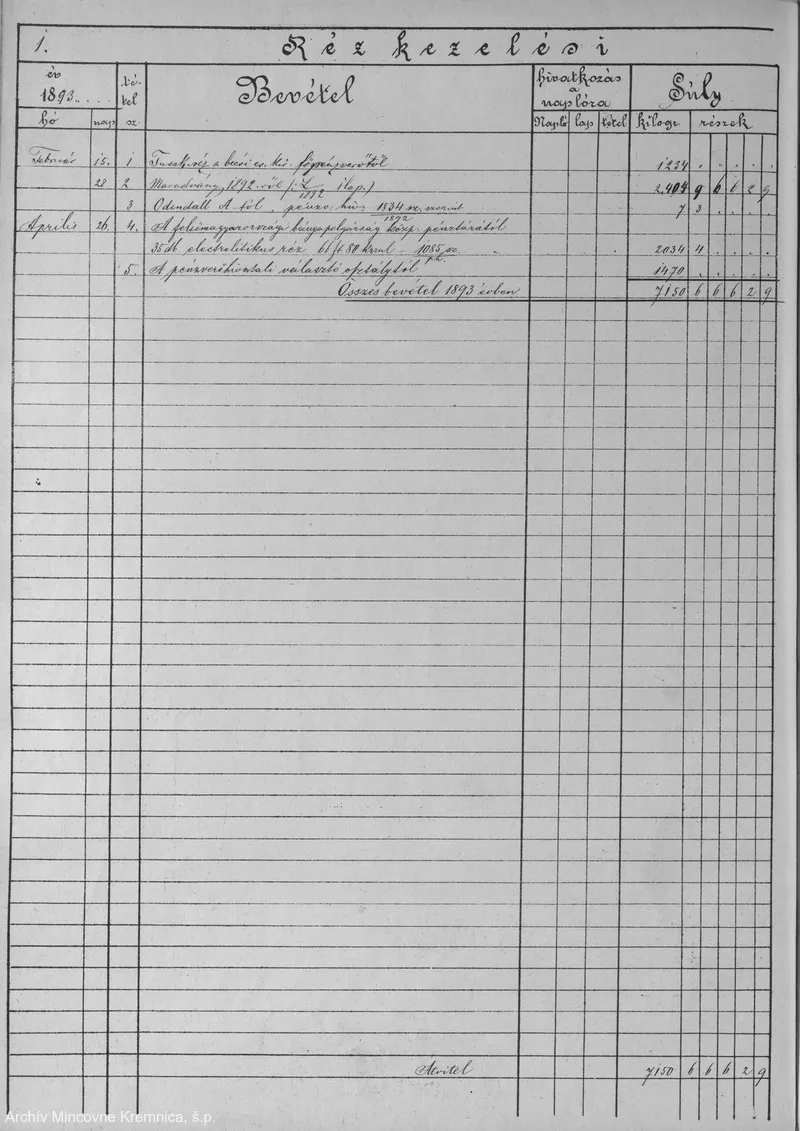 1.
Rézkezelési
év
1893.....
hó
nap
tétel
sz.
Bevétel
hivatkozás
a
naplóra
Napló lap tétel
Súly
kilogr részek
Február 15. 1 a bécsi cs. kir. főpénzverőtől 1234 . . . . .
28 2 Maradvány 1892.ről 1 lap.) 2.404 9 6 6 2 9
3 Odendall A-tól, pénzv. hiv. 1834/1892 sz. szerint 7 3 . . .
Április 26. 4. A felsőmagyarországi bányapolgárság közp. pénztárától
35 db electrolitikus réz 61 ft 80 krral - 1085 sz. 2034 4 . . . .
5. A pénzverőhivatali választó osztálytól 1470 . . . . .
Összes bevétel 1893 évben 7150 6 6 6 2 9
Átvitel 7150 6 6 6 2 9
Archív Mincovne Kremnica, š.p.